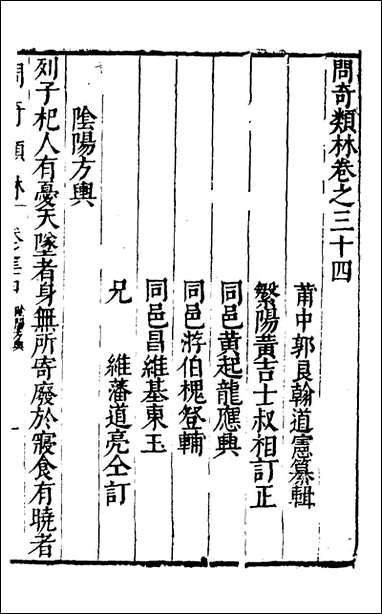 問奇類林卷之三十四
莆中郭良翰道憲纂輯
繁陽黃吉士叔相訂正
同邑黃起龍應興
同邑游伯槐登輔
同邑昌維基東玉
兄　維藩道亮仝訂
陰陽方輿
列子杞人有憂天墜者身無所寄廢於寢食有曉者
問奇類林　卷三十四　陰陽方輿　一